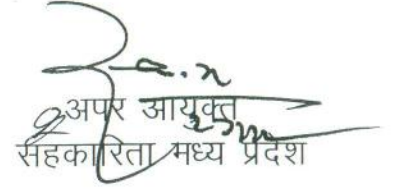 अपर आयुक्त
सहकारिता मध्य प्रदेश